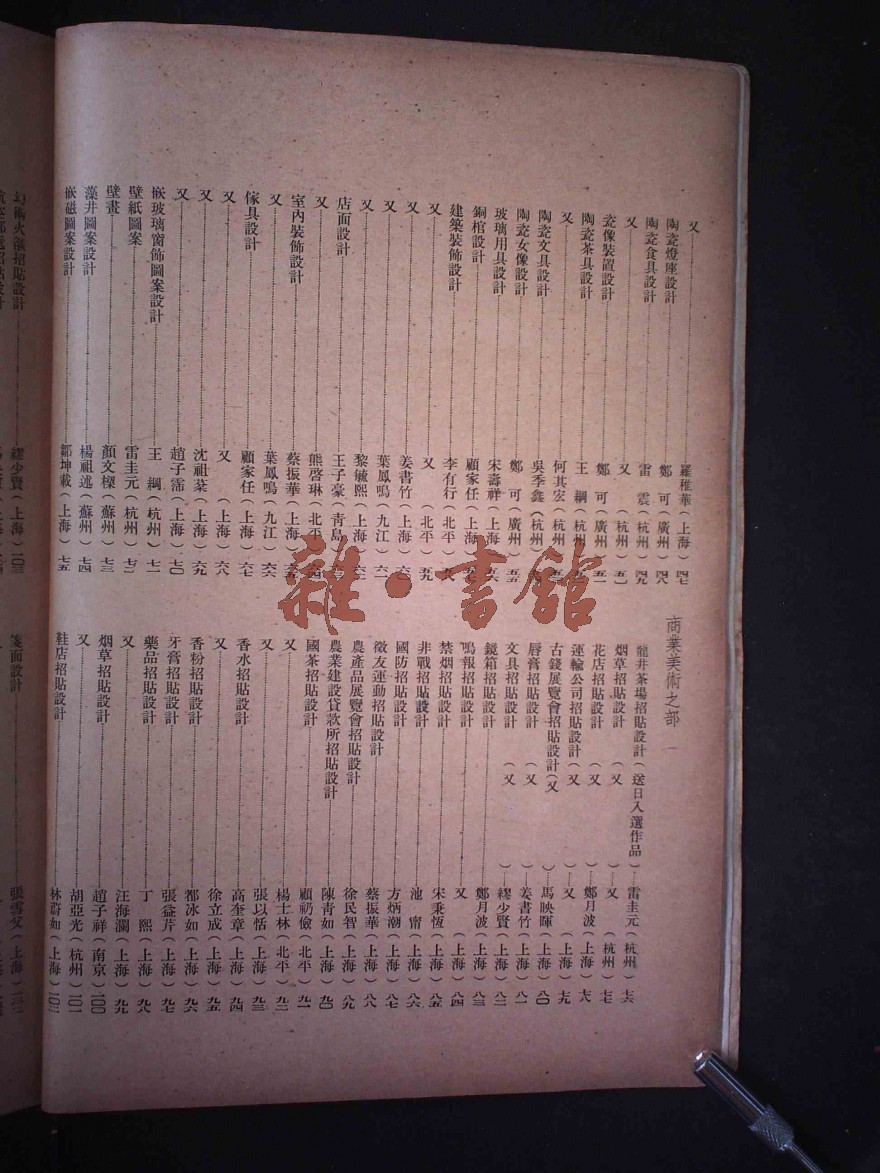 又……羅稚華（上海）四七
陶瓷燈座設計……鄭　可（廣州）四八
陶瓷食具設計……雷　震（杭州）四九
又……又（杭州）五〇
瓷像裝置設計……鄭　可（廣州）五一
陶瓷茶具設計……王　綱（杭州）五二
又……何其宏（杭州）五三
陶瓷文具設計……吳季鑫（杭州）五四
陶瓷女像設計……鄭　可（廣州）五五
玻璃用具設計……宋壽祥（上海）五六
銅棺設計……顧家任（上海）五七
建築裝飾設計……李有行（北平）五八
又……又（北平）五九
又……姜書竹（上海）六〇
又……葉鳳鳴（九江）六一
又……黎毓熙（上海）六二
店面設計……王子豪（青島）六三
又……熊啓琳（北平）六四
室內裝飾設計……蔡振華（上海）六五
又……葉鳳鳴（九江）六六
傢具設計……顧家任（上海）六七
又……又（上海）六八
又……沈祖棻（上海）六九
又……趙子霈（上海）七〇
嵌玻璃窗飾圖案設計……王　綱（杭州）七一
壁紙圖案……雷圭元（杭州）七二
壁畫……顏文樑（蘇州）七三
藻井圖案設計……楊祖述（蘇州）七四
嵌磁圖案設計……鄒坤載（上海）七五
商業美術之部　一
龍井茶場招貼設計（送日入選作品）……雷圭元（杭州）七六
烟草招貼設計（又）……又（杭州）七七
花店招貼設計（又）……鄭月波（上海）七八
運輸公司招貼設計（又）……又（上海）七九
古錢展覽會招貼設計（又）……馬映暉（上海）八〇
唇膏招貼設計（又）……姜書竹（上海）八一
文具招貼設計（又）……繆少賢（上海）八二
鏡箱招貼設計……鄭月波（上海）八三
鳴報招貼設計……又（上海）八四
禁烟招貼設計……宋秉恆（上海）八五
非戰招貼設計……池　甯（上海）八六
國防招貼設計……方炳潮（上海）八七
徵友運動招貼設計……蔡振華（上海）八八
農產品展覽會招貼設計……徐民智（上海）八九
農業建設貸款所招貼設計……陳青如（上海）九〇
國茶招貼設計……顧礽儉（北平）九一
又……楊士林（北平）九二
又……張以恬（上海）九三
香水招貼設計……高奎章（上海）九四
又……徐立成（上海）九五
香粉招貼設計……都泳如（上海）九六
牙膏招貼設計……張益芹（上海）九七
藥品招貼設計……丁　熙（上海）九八
又……汪海瀾（上海）九九
烟草招貼設計……趙子祥（南京）一〇〇
又……胡亞光（杭州）一〇一
鞋店招貼設計……林蔚如（上海）一〇二
招貼設計……繆少賢（上海）一〇三
箋面設計……張雪父（上海）
雜·書館